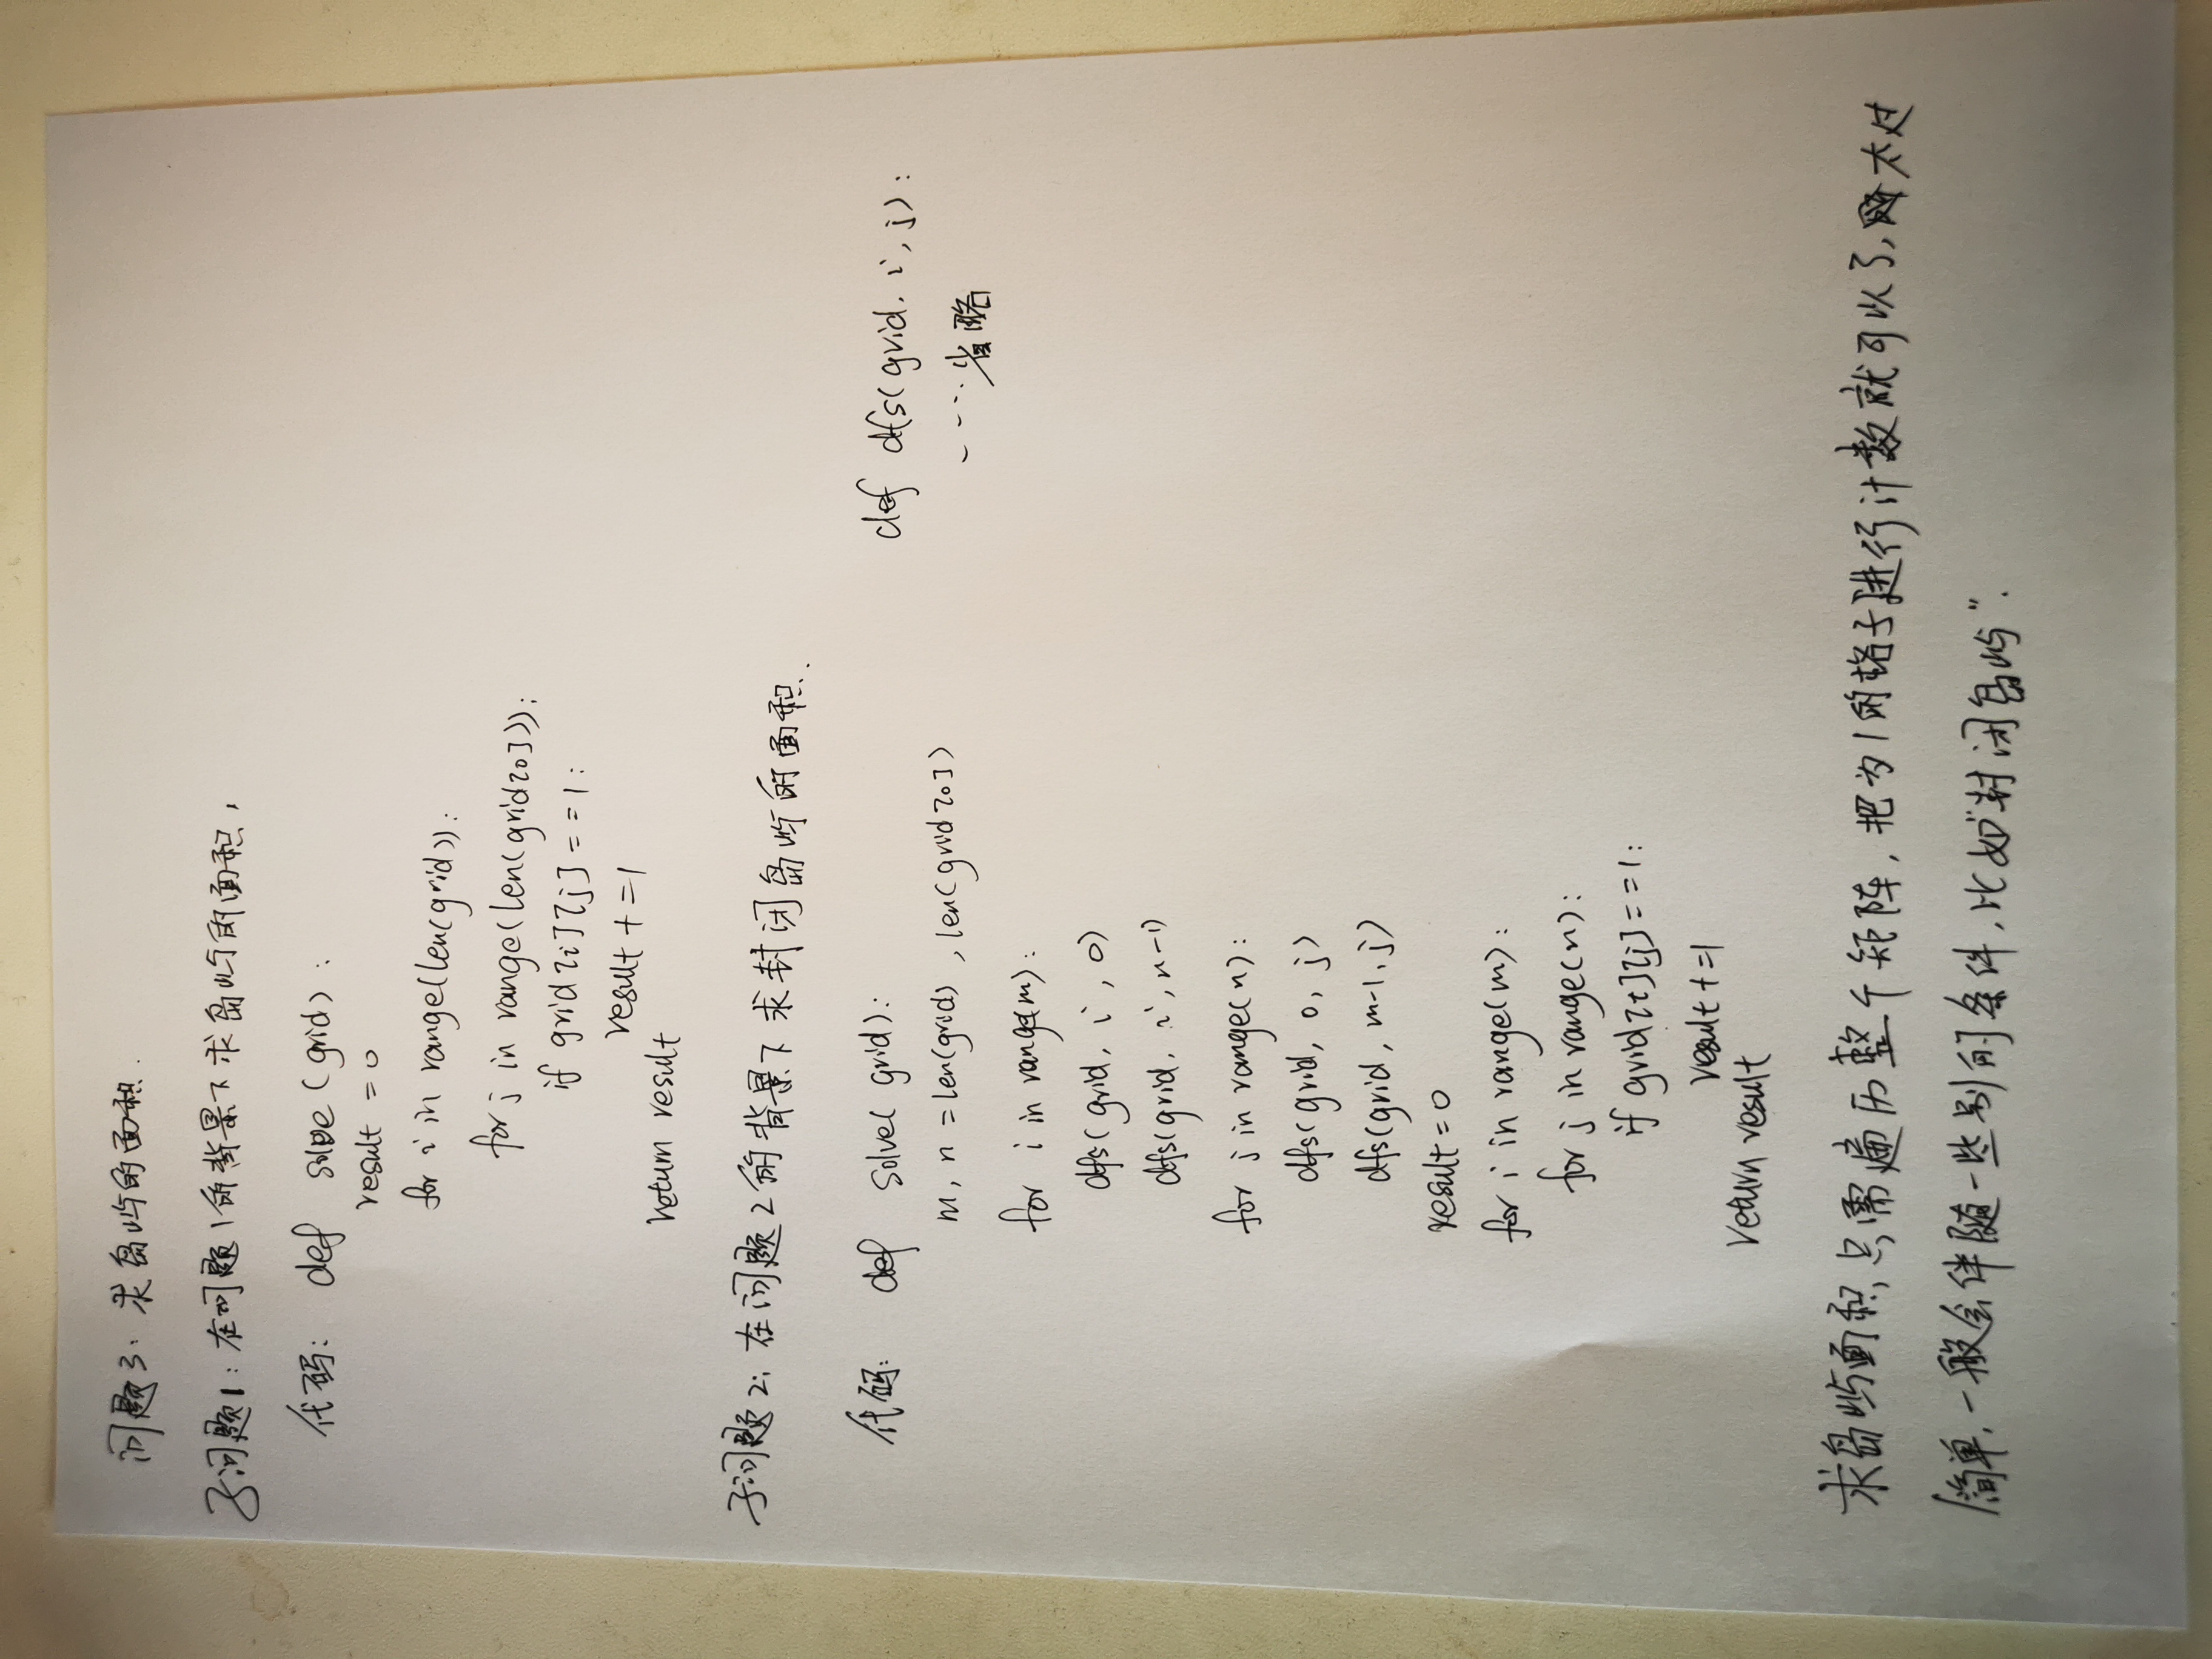 问题3: 求岛屿的面积.
子问题1: 在问题1的背景下求岛屿的面积,
代码: def solve(grid):
result = 0
for i in range(len(grid)):
for j in range(len(grid[0])):
if grid[i][j] == 1:
result += 1
return result
子问题2: 在问题2的背景下求封闭岛屿的面积.
代码: def solve(grid):
m, n = len(grid), len(grid[0])
for i in range(m):
dfs(grid, i, 0)
dfs(grid, i, n-1)
for j in range(n):
dfs(grid, 0, j)
dfs(grid, m-1, j)
result = 0
for i in range(m):
for j in range(n):
if grid[i][j] == 1:
result += 1
return result
def dfs(grid, i, j):
.....省略
求岛屿面积,只需遍历整个矩阵,把为1的格子进行计数就可以了,太过
简单,一般会伴随一些别的条件,比如"封闭岛屿".